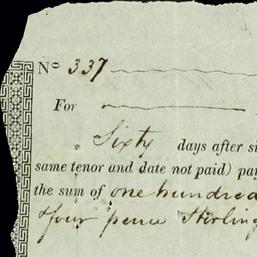 No 337
For
Sixty days after si
same tenor and date not paid) pay
the sum of one hundred
four pence Sterling